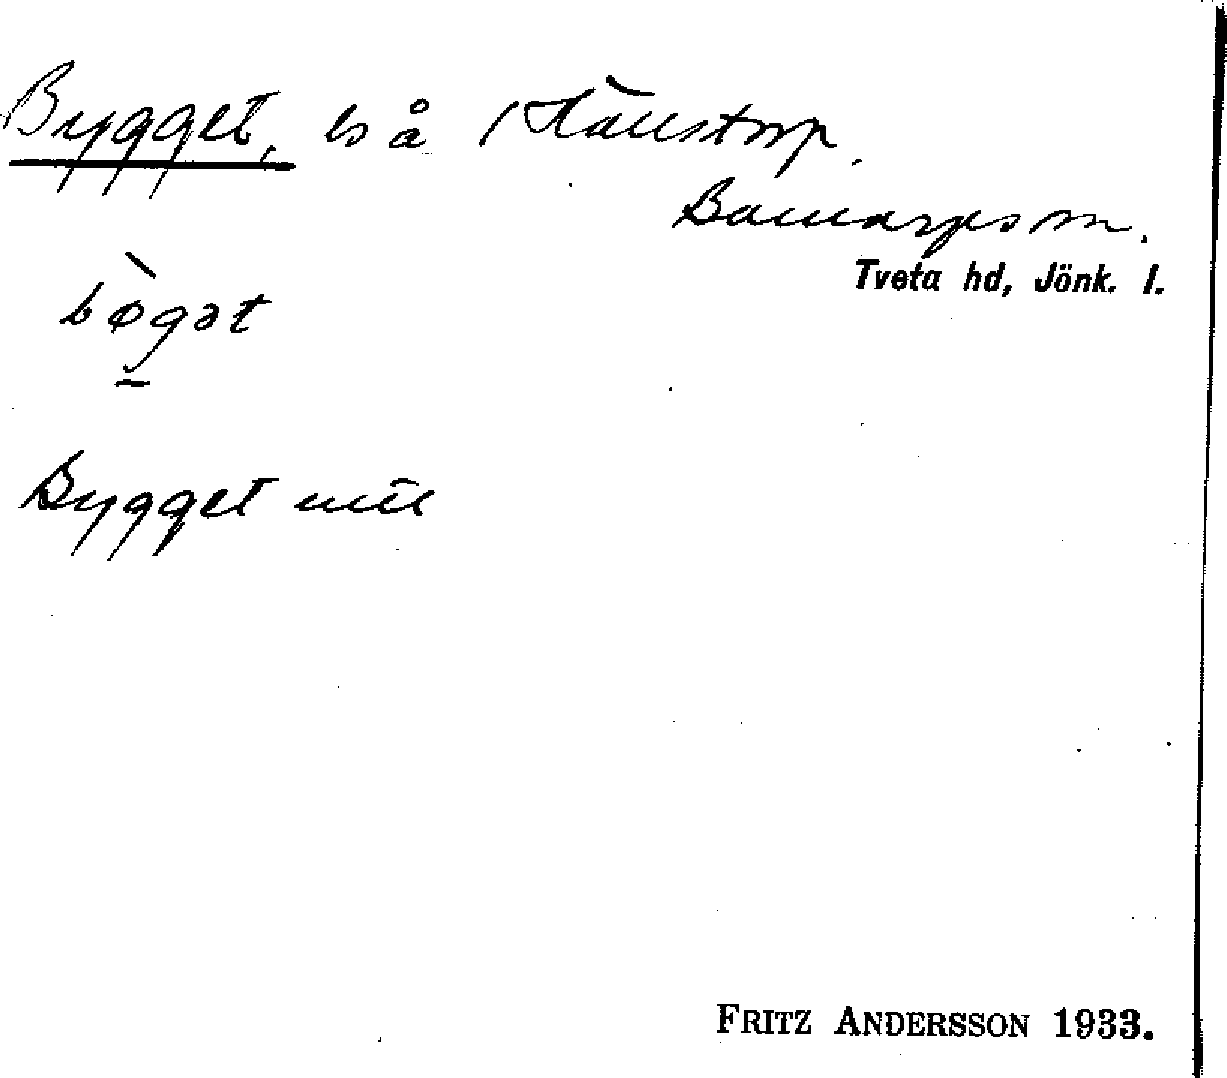 Bygget, ls å Hällstorp.
Barnarps sn.
Tveta hd, Jönk. l.
bøgət
Bygget
FRITZ ANDERSSON 1933.